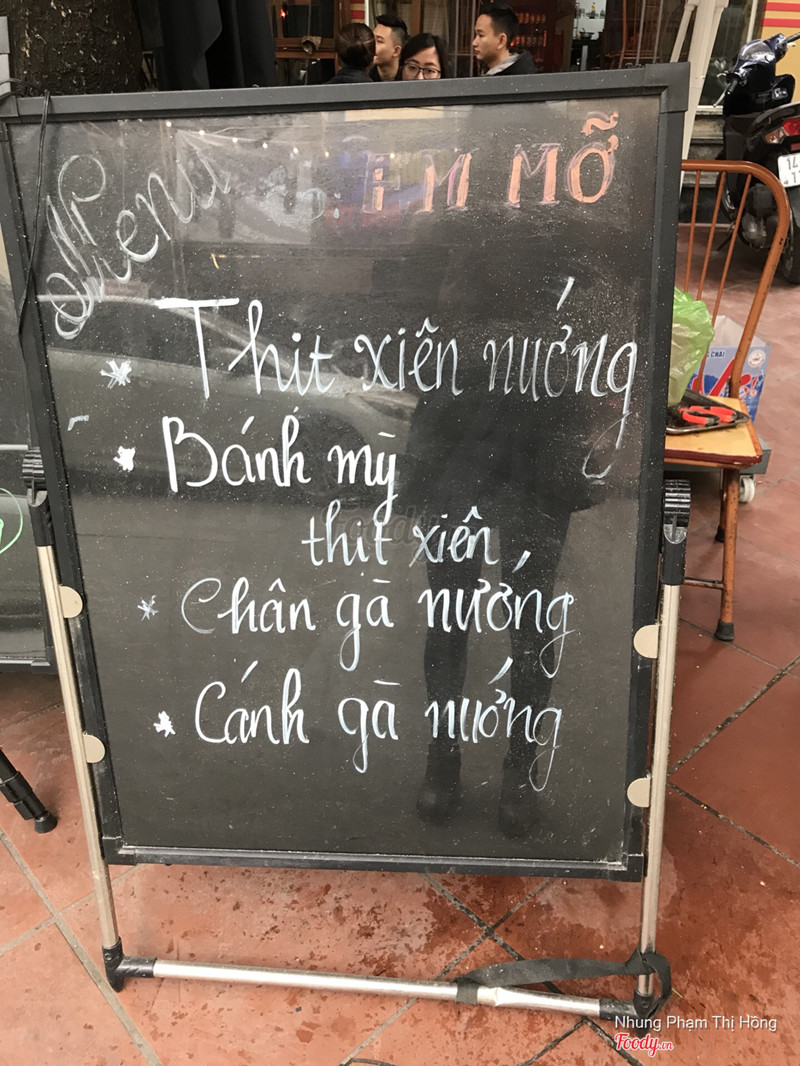 Menu
MỠ
* Thịt xiên nướng
* Bánh mỳ
thịt xiên
* Chân gà nướng
* Cánh gà nướng
Foody
14
Nhung Phạm Thị Hồng
Foody.vn